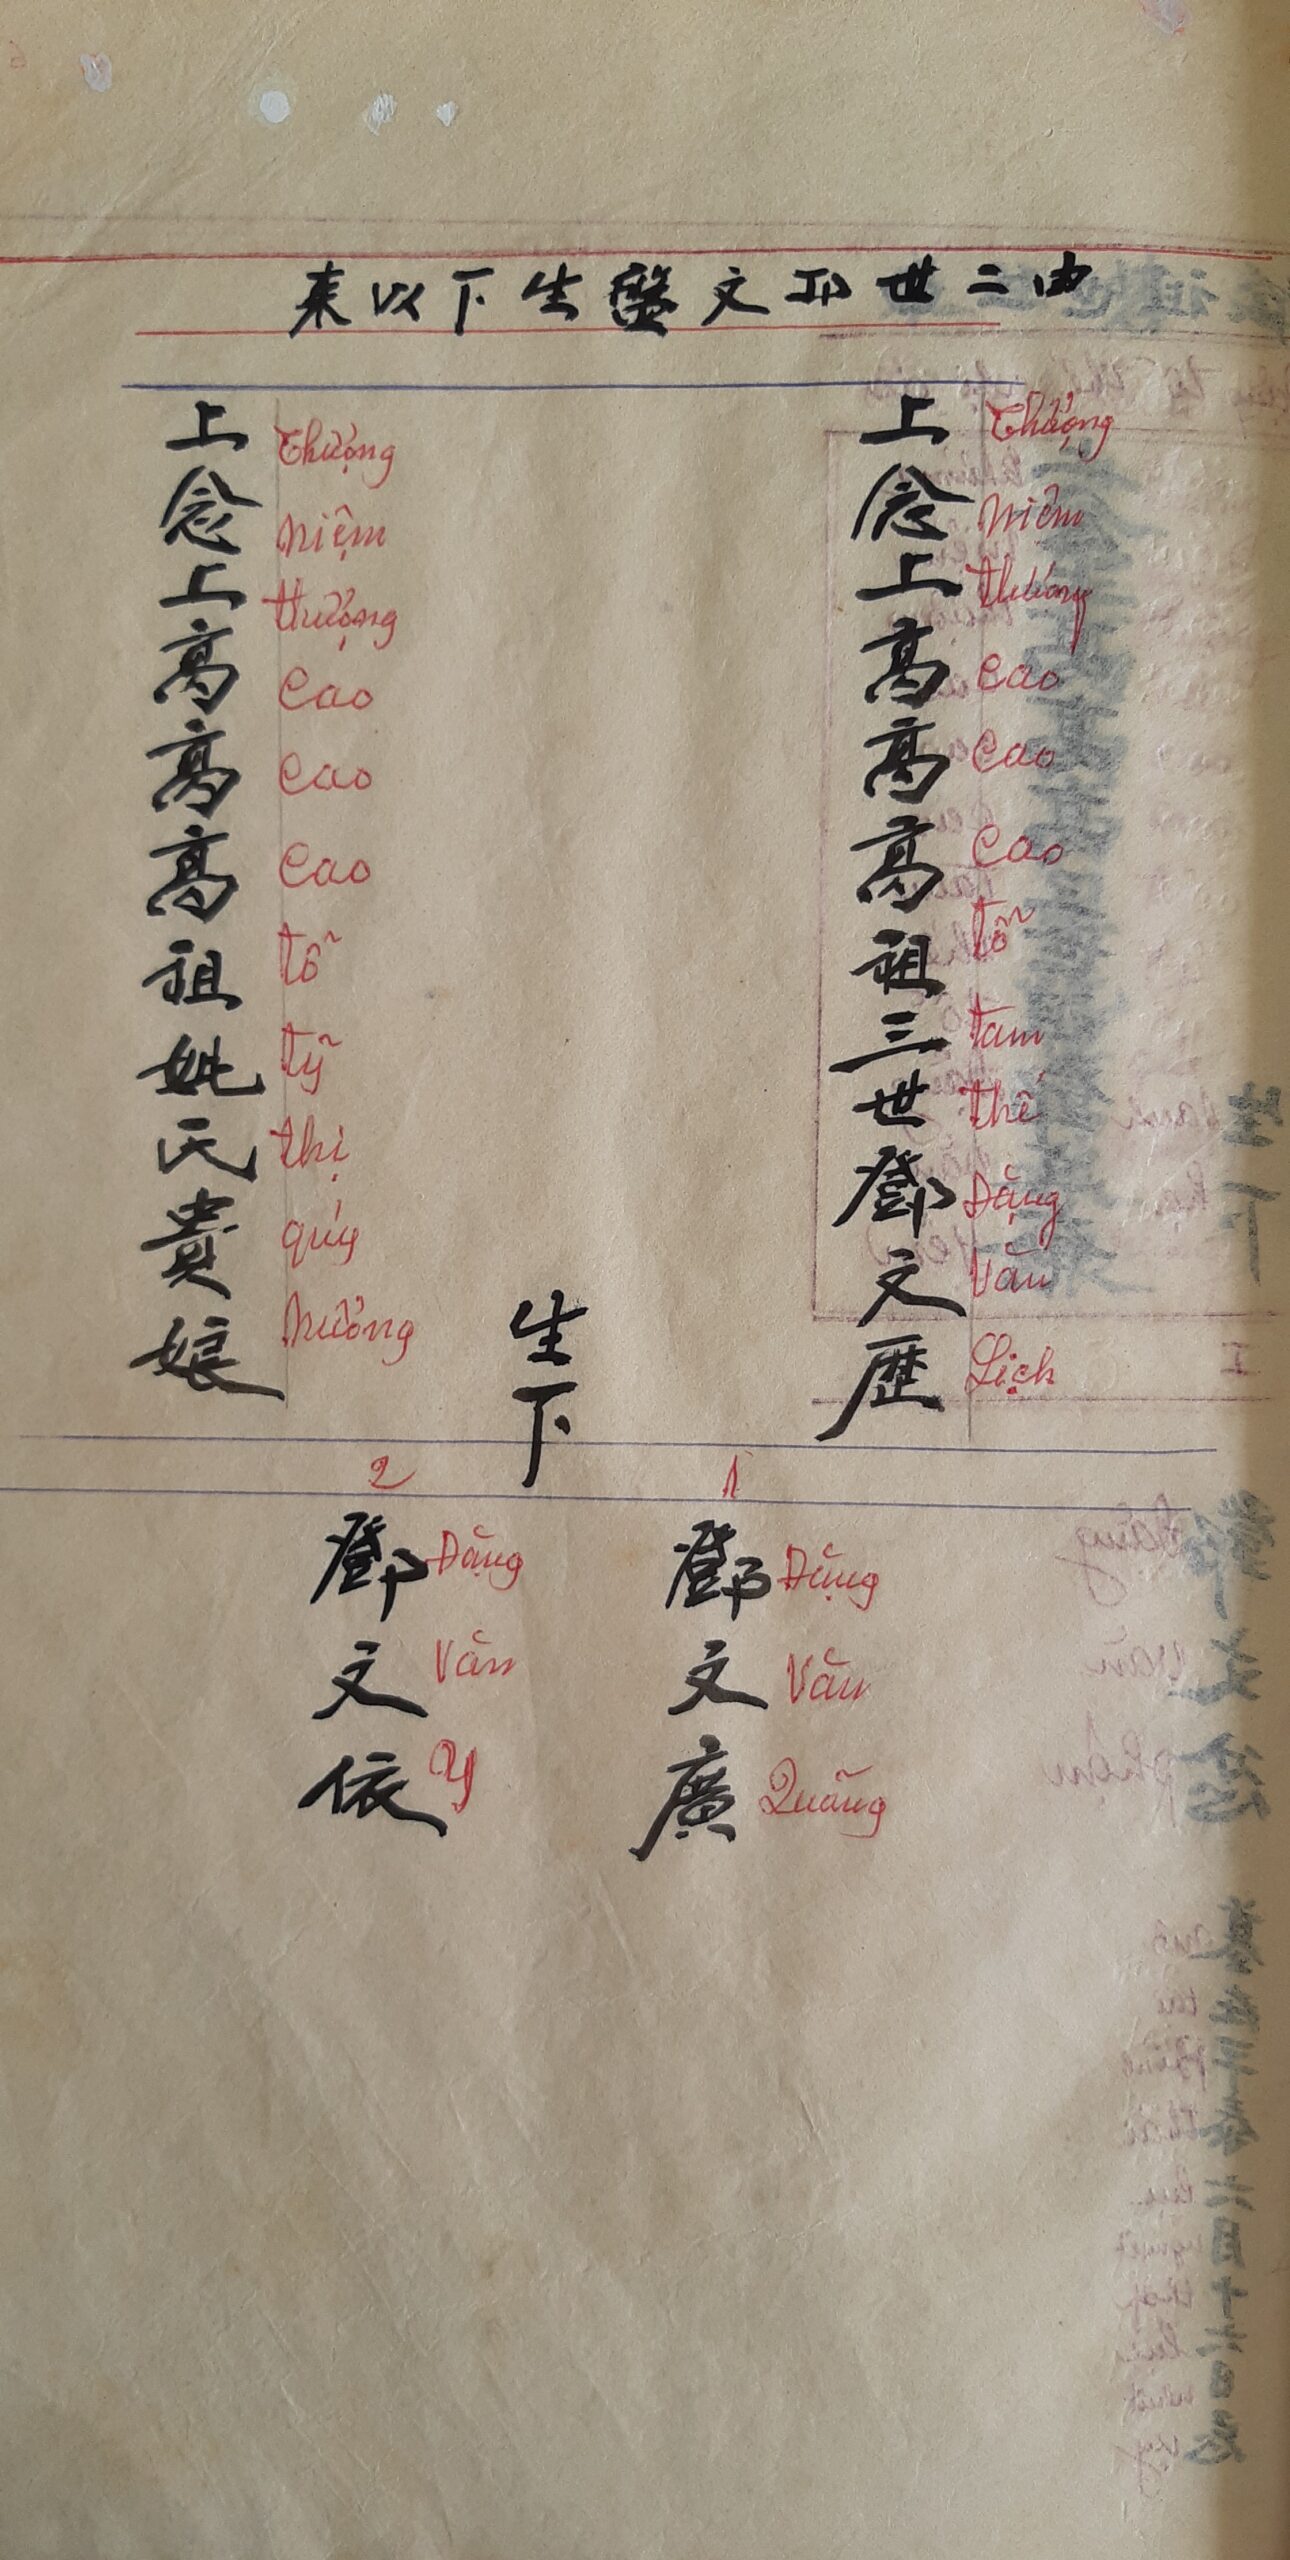 由二世卭文盤生下以来
上念上高高高祖三世鄧文歷
Thượng niệm thượng cao cao cao tổ tam thế Đặng Văn Lịch
上念上高高高祖妣氏貴娘
Thượng niệm thượng cao cao cao tỗ tỹ thị qúy nương
生下
1
鄧文廣
Đặng Văn Quãng
2
鄧文依
Đặng Văn Y